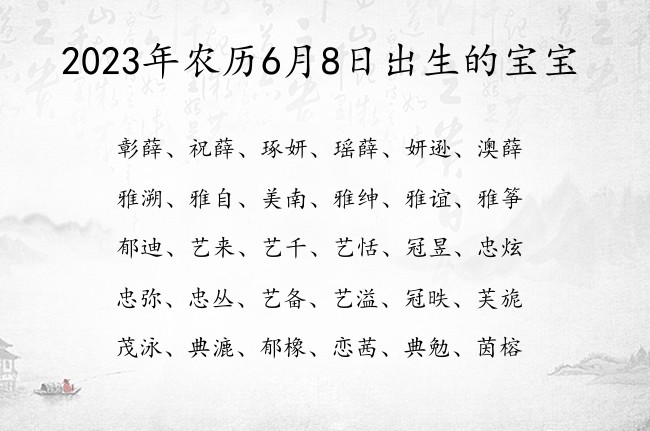 2023年农历6月8日出生的宝宝
彰薛、祝薛、琢妍、瑶薛、妍逊、澳薛
雅溯、雅自、美南、雅绅、雅谊、雅筝
郁迪、艺来、艺千、艺恬、冠昱、忠炫
忠弥、忠丛、艺备、艺溢、冠昳、芙旎
茂泳、典漉、郁橡、恋茜、典勉、茵榕